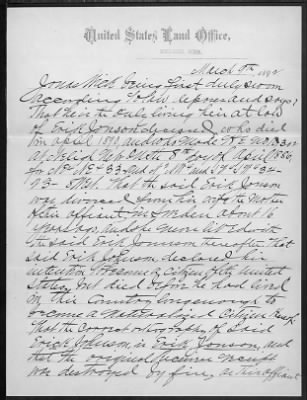 United States Land Office,
March 9th, 1892
Jonas Wick being first duly sworn
according to law deposes and says;
That he is the only living heir at law
of Erik Jonson deceased, who died
in April 1890, and who made H E No.
at Neligh Neb on the 8th day of April 1880,
for
23 - 5 West. That the said Erik Jonson
was divorced from his wife the mother
of this affiant, in Sweden about 16
years ago, and she never lived with
the said Erik Jonson thereafter. That
said Erik Johnson, declared his
intention to become a citizen of the United
States, but died before he had lived
in this Country long enough to
become a naturalized Citizen thereof.
That the correct orthography of said
Erick Johnson, is Erik Jonson, and
that the original receiver receipt
was destroyed by fire, as this affiant